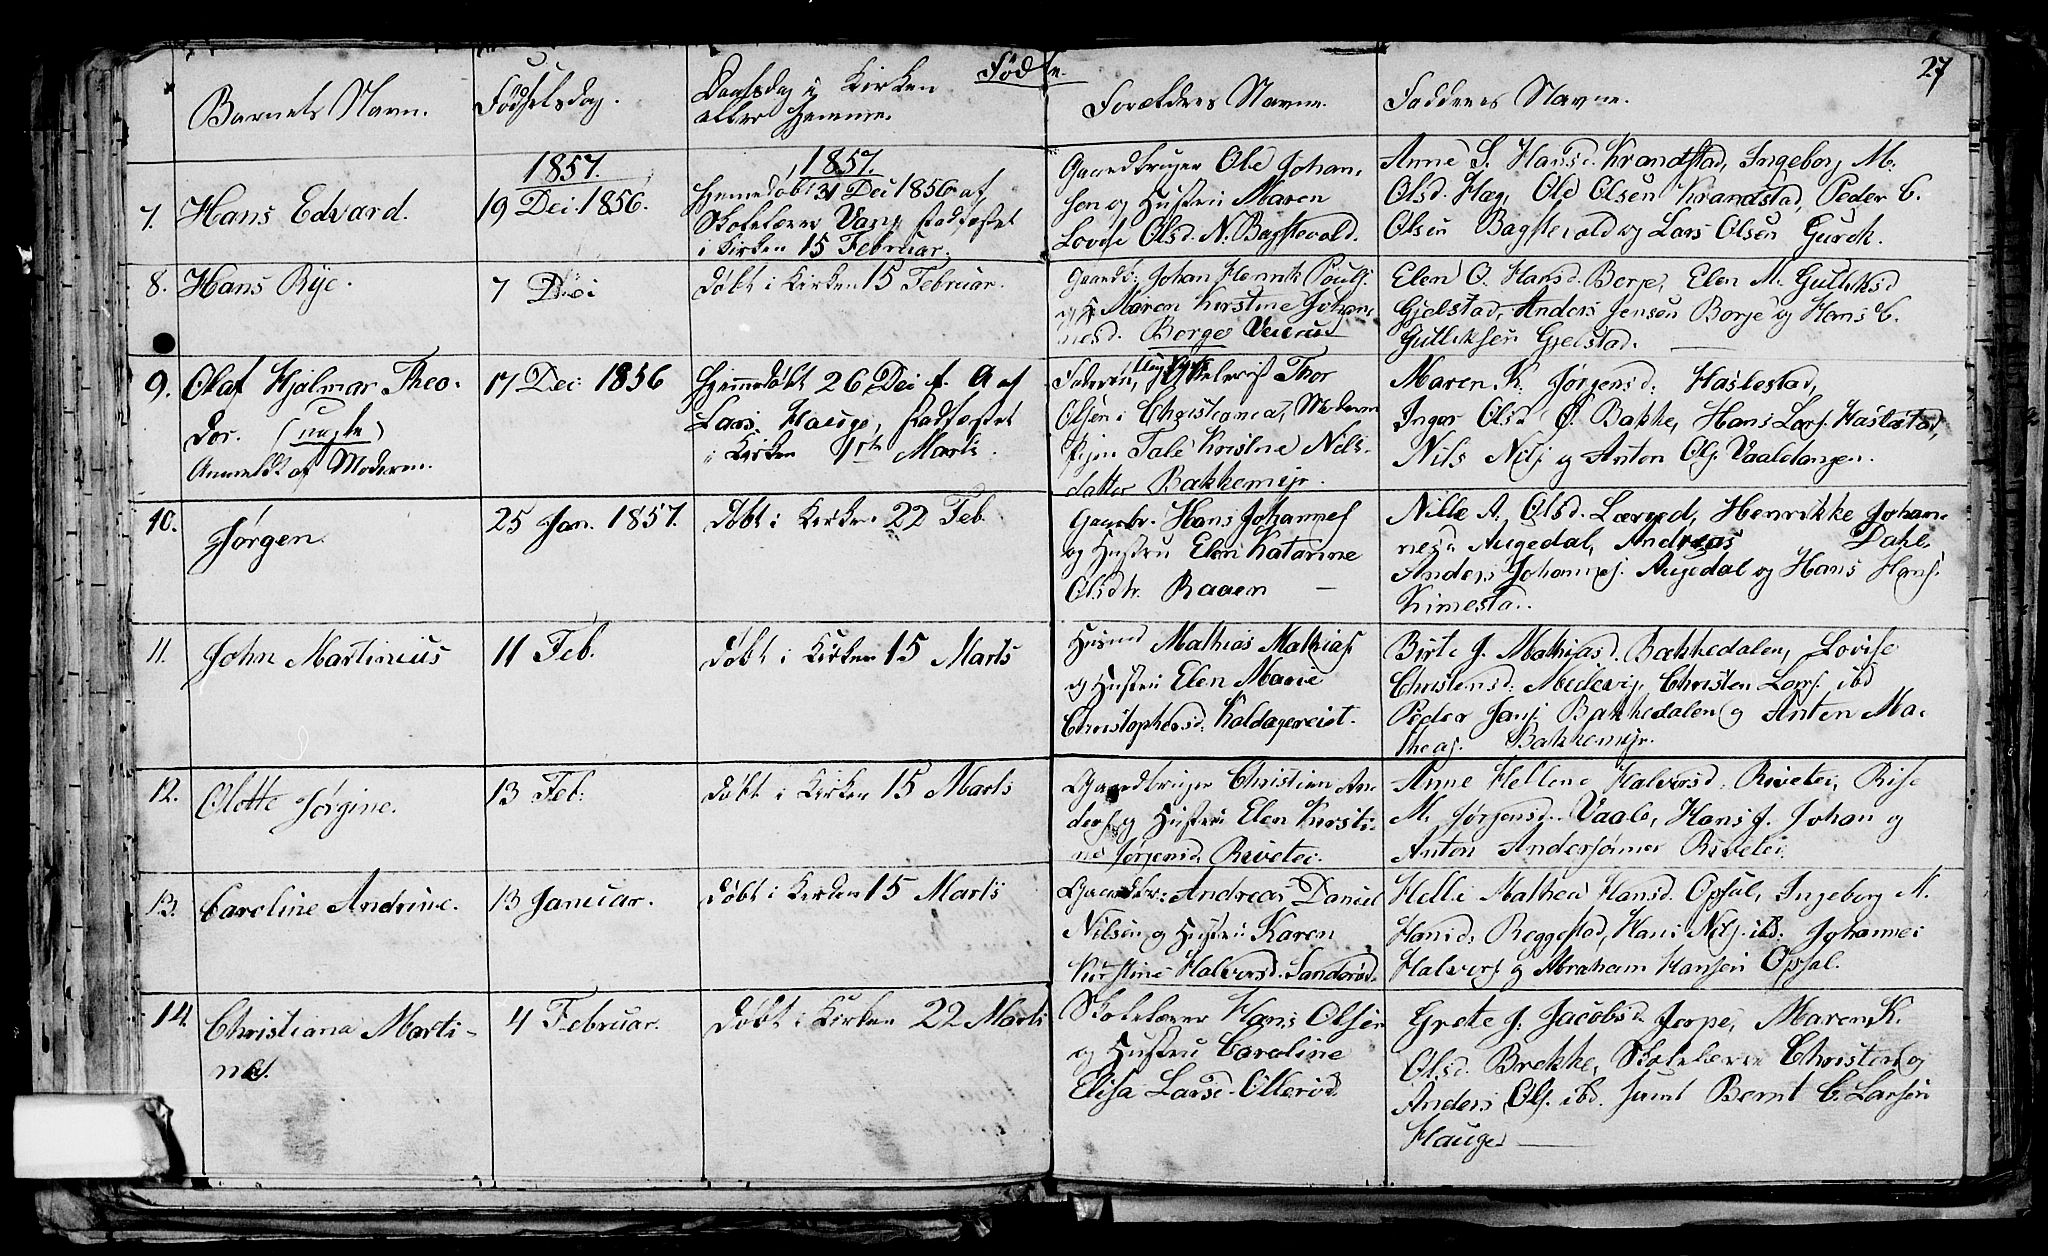 Fødte.
27
Barnets Navn.
Fødselsdag.
Daabsdag i Kirken
eller Hjemme.
Forældres Navne.
Faddernes Navne.
1857.
1857.
7. Hans Edvard.
19 Dec. 1856.
Hjemedøbt 31 Dec 1856 af
Skolelærer Vang, stadfæstet
i Kirken 15 Februar.
Gaardbruger Ole Johan-
sen og Hustru Maren
Lovise Olsd. N. Bagstevold.
Anne S. Hansd. Krandstad, Ingeborg M.
Olsd. Hæg, Ole Olsen Krandstad, Peder C.
Olsen Bagstevold og Lars Olsen
8. Hans Rye.
7 Dec
døbt i Kirken 15 Februar.
Gaardb. Johan Henrik Pouls.
og H Maren Kirstine Johan-
nesd. Borge
Elen O. Hansd. Borge, Elen M. Gulliksd
Gjelstad, Anders Jensen Borge og Hans C.
Gulliksen Gjelstad.
9. Olaf Hjalmar Theo-
dor. (uægte)
Anmeldt af Moderen.
17 Dec. 1856
Hjemmedøbt 26 Dec f. A af
Lars Hauge, stadfæstet
i Kirken 1ste Marts.
Faderen, Ungkarl Thor
Olsen i Christiania, Moderen
Pigen Tale Kristine Nils-
datter Bakkemyr.
Maren K. Jørgensd. Haslestad,
Inger Olsd Ø. Bakke, Hans Lars. Haslestad,
Nils Nils. og Anton Ols. Vaaletangen.
10. Jørgen
25 Jan. 1857.
døbt i Kirken 22 Feb.
Gaardbr. Hans Johannes.
og Hustru Elen Katarine
Olsdtr. Raaen
Nille A. Olsd. Lærged, Henrikke Johan-
nesd Augedal, Andreas Dahl.
Anders Johannes. Augedal og Hans Hans.
Kimestad.
11. John Martinius
11 Feb.
døbt i Kirken 15 Marts
Husmd Mathias Mathias.
og Hustru Elen Marie
Christophersd. Kaldagereiet.
Birte J. Mathiasd. Bakkedalen, Lovise
Christensd. Christen Lars. ibd
Peder Jans. Bakkedalen og Anton Ma-
theas. Bakkemyr.
12. Olette Jørgine.
13 Feb.
døbt i Kirken 15 Marts
Gaardbruger Christian An-
ders. og Hustru Elen Kirsti-
ne Jørgensd. Revetei.
Anne Hellene Halvorsd. Revetei, Rise
M. Jørgensd. Vaale, Hans J. Johan og
Anton Anderssønner Revetei.
13. Caroline Andrine.
13 Januar.
døbt i Kirken 15 Marts
Gaardbr. Andreas Daniel
Nilsen og Hustru Karen
Kirstine Halvorsd. Sanderød.
Helle Mathea Hansd. Opsal, Ingeborg M.
Hansd. Reggestad, Hans Nils. ibd. Johannes
Halvors. og Abraham Hansen Opsal.
14. Christiana Marti-
nea.
4 Februar.
døbt i Kirken 22 Marts
Skolelærer Hans Olsen
og Hustru Caroline
Elisa Larsd. Ollerød.
Grete J. Jacobsd. Jerpe, Maren K.
Olsd. Brekke, Skolelærer Christen og
Anders Ols. ibd. samt Bernt C. Larsen
Hauge